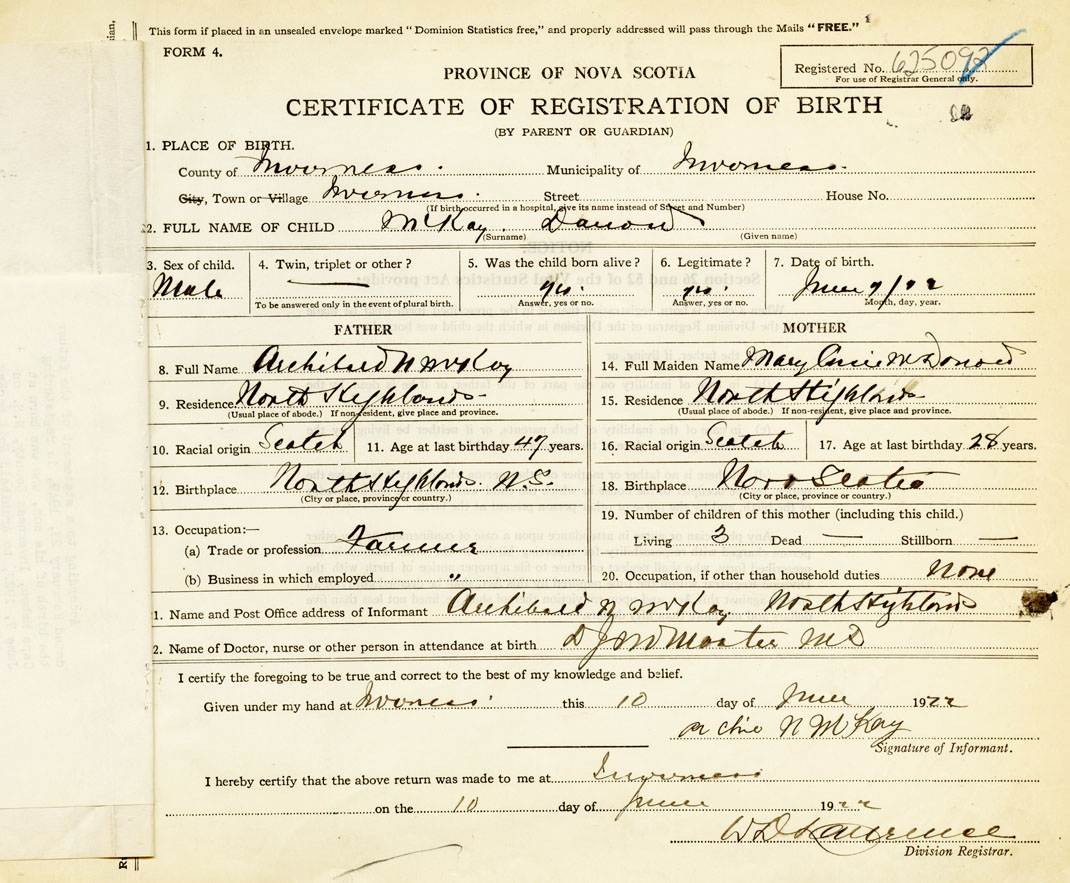 This form if placed in an unsealed envelope marked "Dominion Statistics free," and properly addressed will pass through the Mails "FREE."
FORM 4.
Registered No. 625092
For use of Registrar General only.
PROVINCE OF NOVA SCOTIA
CERTIFICATE OF REGISTRATION OF BIRTH
(BY PARENT OR GUARDIAN)
1. PLACE OF BIRTH.
County of Inverness. Municipality of Inverness.
City, Town or Village Inverness. Street House No.
(If birth occurred in a hospital, give its name instead of Street and Number)
2. FULL NAME OF CHILD McKay.
(Surname) (Given name)
3. Sex of child. 4. Twin, triplet or other? 5. Was the child born alive? 6. Legitimate? 7. Date of birth.
Male — yes. yes. June 9/22
To be answered only in the event of plural birth. Answer, yes or no. Answer, yes or no. Month, day, year.
FATHER MOTHER
8. Full Name Archibald N McKay 14. Full Maiden Name Mary Annie McDonald
9. Residence North Highlands 15. Residence North Highlands
(Usual place of abode.) If non-resident, give place and province. (Usual place of abode.) If non-resident, give place and province.
10. Racial origin Scotch 11. Age at last birthday 47 years. 16. Racial origin Scotch 17. Age at last birthday 28 years.
12. Birthplace North Highlands. N.S. 18. Birthplace Nova Scotia
(City or place, province or country.) (City or place, province or country.)
19. Number of children of this mother (including this child.)
13. Occupation:—
Living 3 Dead — Stillborn —
(a) Trade or profession Farmer
(b) Business in which employed " 20. Occupation, if other than household duties None
1. Name and Post Office address of Informant Archibald N McKay North Highlands
2. Name of Doctor, nurse or other person in attendance at birth MD
I certify the foregoing to be true and correct to the best of my knowledge and belief.
Given under my hand at Inverness this 10 day of June 1922
Archie N McKay
Signature of Informant.
I hereby certify that the above return was made to me at Inverness
on the 10 day of June 1922
W D Lawrence
Division Registrar.